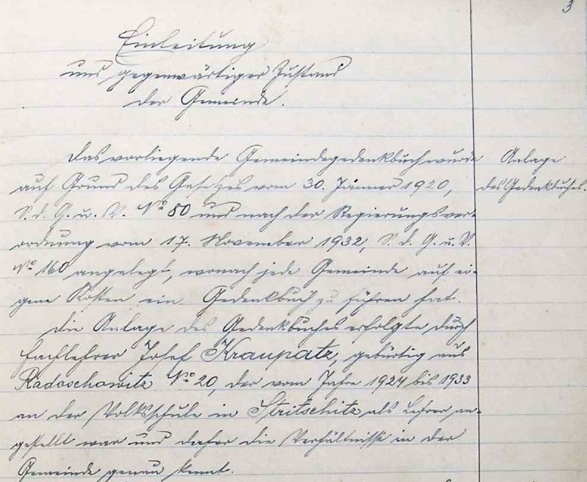 3
Einleitung
und gegenwärtiger Zustand
der Gemeinde.
Das vorliegende Gemeindegedenkbuch wurde
Anlage
auf Grund des Gesetzes vom 30. Jänner 1920,
des Gedenkbuches.
S. d. G. u. V. No 80 und nach der Regierungsver-
ordnung vom 17. November 1932, S. d. G. u. V.
No 160 angelegt, wonach jede Gemeinde auf ei-
gene Kosten ein Gedenkbuch zu führen hat.
Die Anlage des Gedenkbuches erfolgte durch
Fachlehrer Josef Kraupatz, gebürtig aus
Radoschowitz No 20, der vom Jahre 1924 bis 1933
an der Volksschule in Stritschitz als Lehrer an-
gestellt war und daher die Verhältnisse in der
Gemeinde genau kennt.